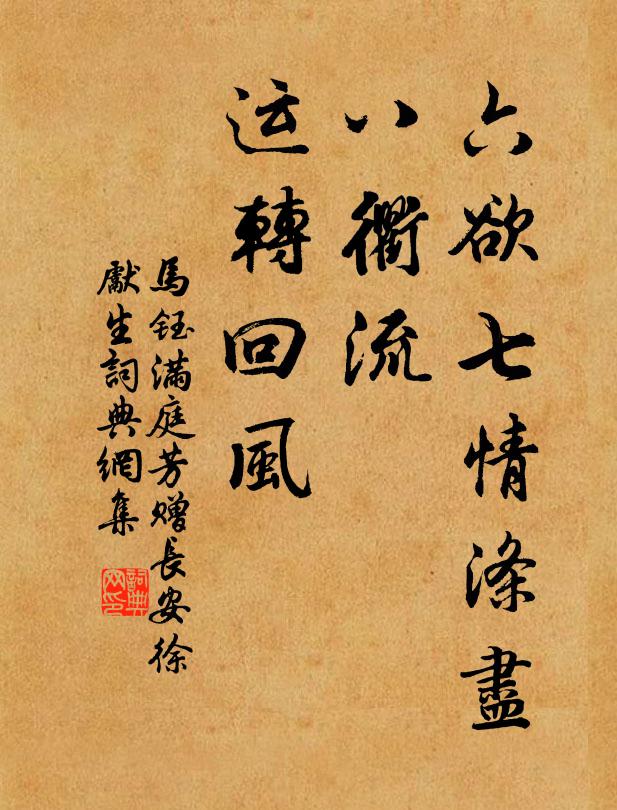 六欲七情涤盡
八衢流
运轉回風
馬钰满庭芳赠長安徐
獻生詞典網集
詞典
网印